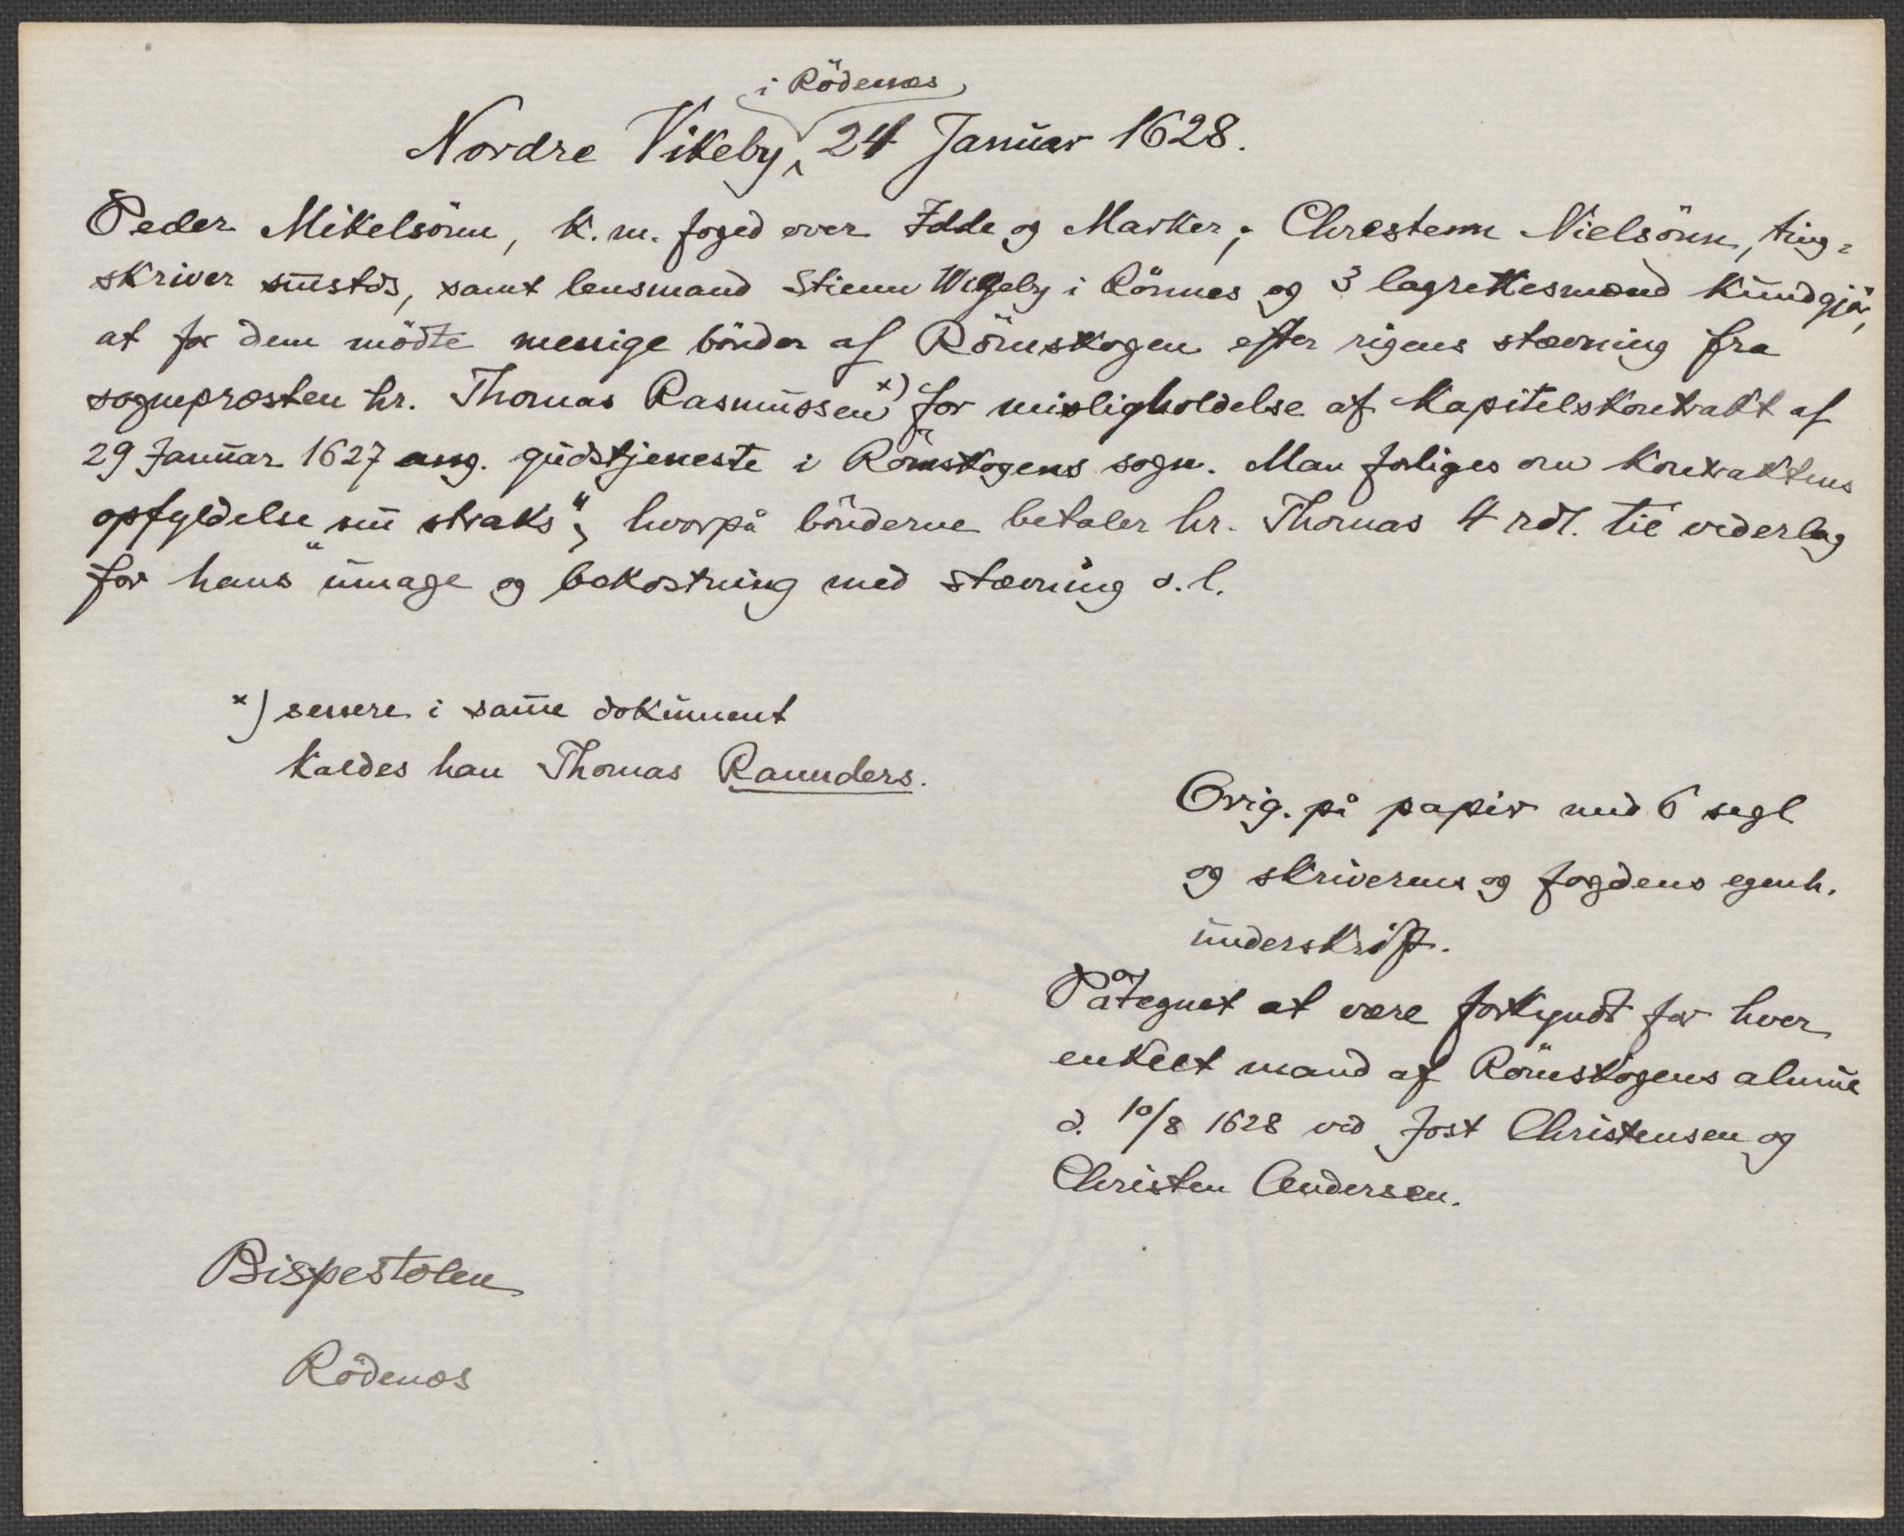 i Rödenæs
Nordre Vikeby, 24 Januar 1628.
Peder Mikelsönn, k. m. foged over Idde og Marker, Chrestenn Nielsönn, ting-
skriver sm̅stds, samt lensmand Stienn Wigeby i Rönnes og 3 lagrettesmænd kundgjör,
at for dem mödte menige bönder af Römskogen efter rigens stævning fra
sognepræsten hr. Thomas Rasmussen x) for misligholdelse af kapitelskontrakt af
29 Januar 1627 ang. gudstjeneste i Römskogens sogn. Man forliges om kontraktens
opfyldelse „nu straks“, hvorpå bönderne betaler hr. Thomas 4 rdl. til vederlag
for hans „umage og bekostning med stævning o. l.
x) senere i sam̅e dokument
kaldes han Thomas Raunders.
Orig. på papir med 6 segl
og skriverens og fogdens egenh.
underskrift.
Påtegnet at være forkyndt for hver
enkelt mand af Römskogens almue
d. 10/8 1628 ved Jost Christensen og
Christen Andersen.
Bispestolen
Rödenæs